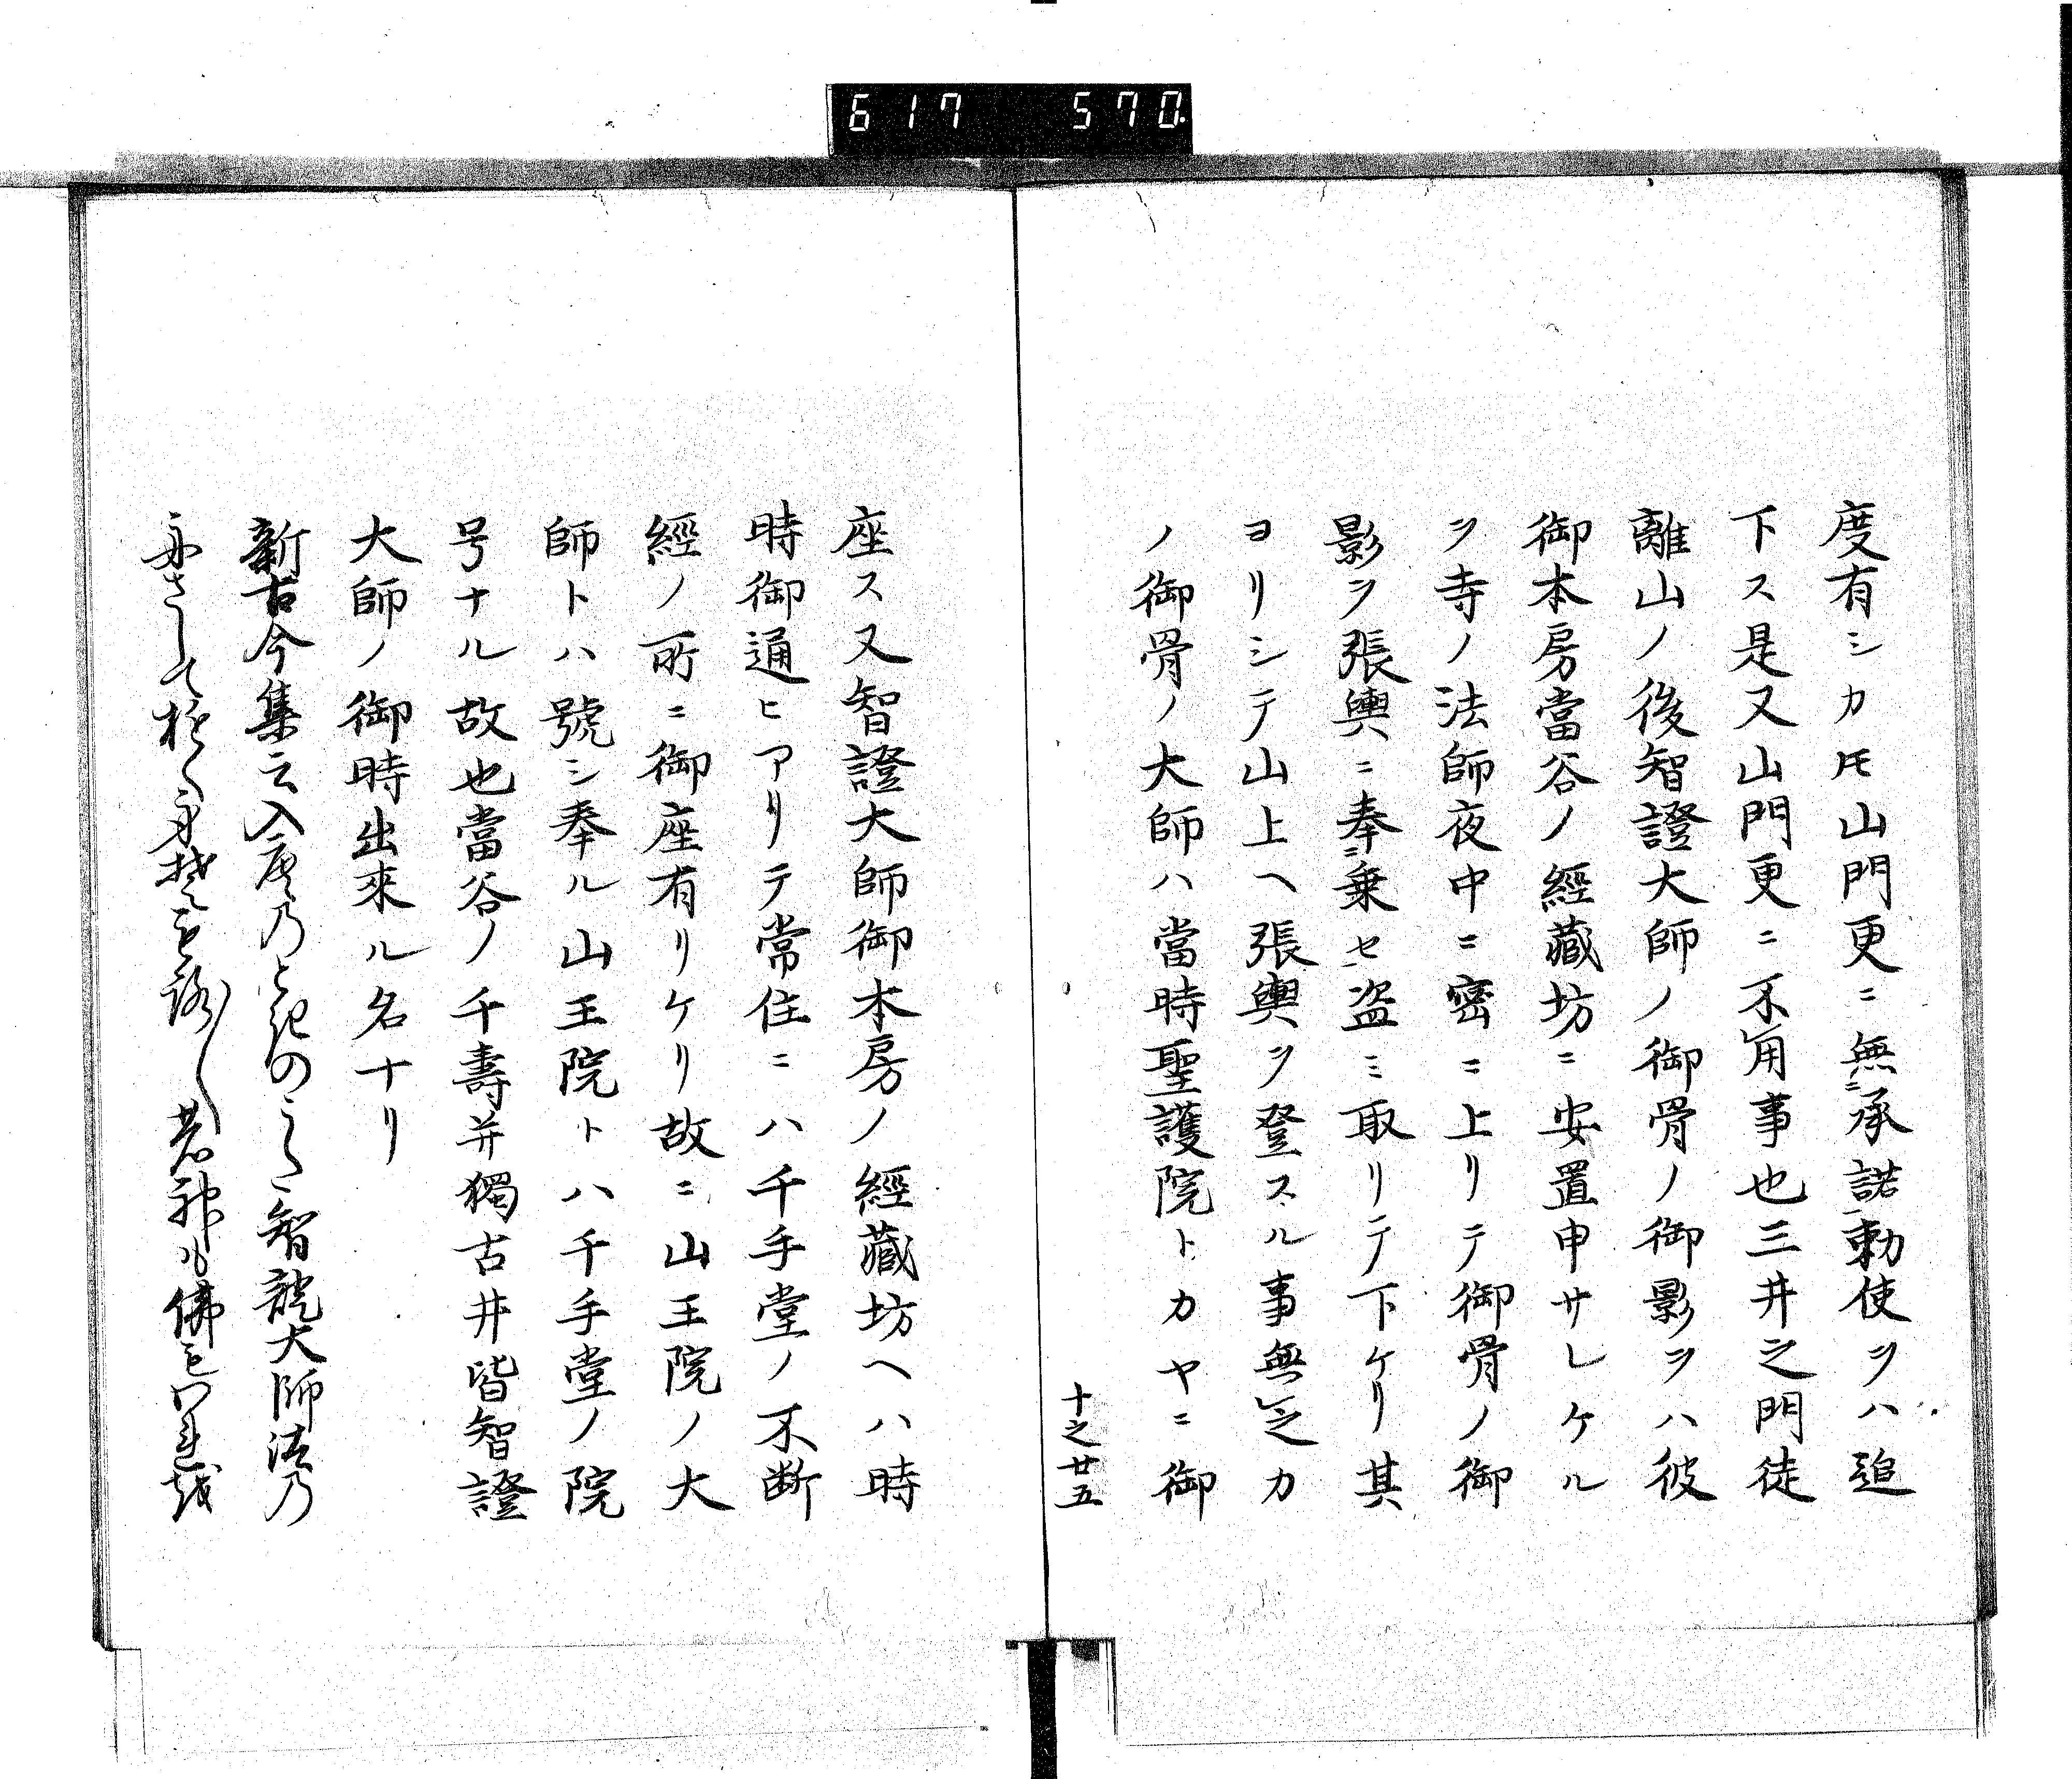 617 570
度有シカ𪜈山門更ニ無ニ承諾勅使ヲハ追
下ス是又山門更ニ不用事也三井之門徒
離山ノ後智證大師ノ御骨ノ御影ヲハ彼
御本房當谷ノ經藏坊ニ安置申サレケル
ヲ寺ノ法師夜中ニ密ニ上リテ御骨ノ御
影ヲ張輿ニ奉ニ乗セ盗ミ取リテ下ケリ其
ヨリシテ山上ヘ張輿ヲ登スル事無之カ
ノ御骨ノ大師ハ當時聖護院トカヤニ御
十之廿五
座ス又智證大師御本房ノ經藏坊ヘハ時
時御通ヒアリテ常住ニハ千手堂ノ不断
經ノ所ニ御座有リケリ故ニ山王院ノ大
師トハ號シ奉ル山王院トハ千手堂ノ院
号ナル故也當谷ノ千壽井獨古井皆智證
大師ノ御時出來ル名ナリ
新古今集云入唐乃ときのうた智證大師法乃
舟さしてゆく身そもろ〱の神も佛もわれを